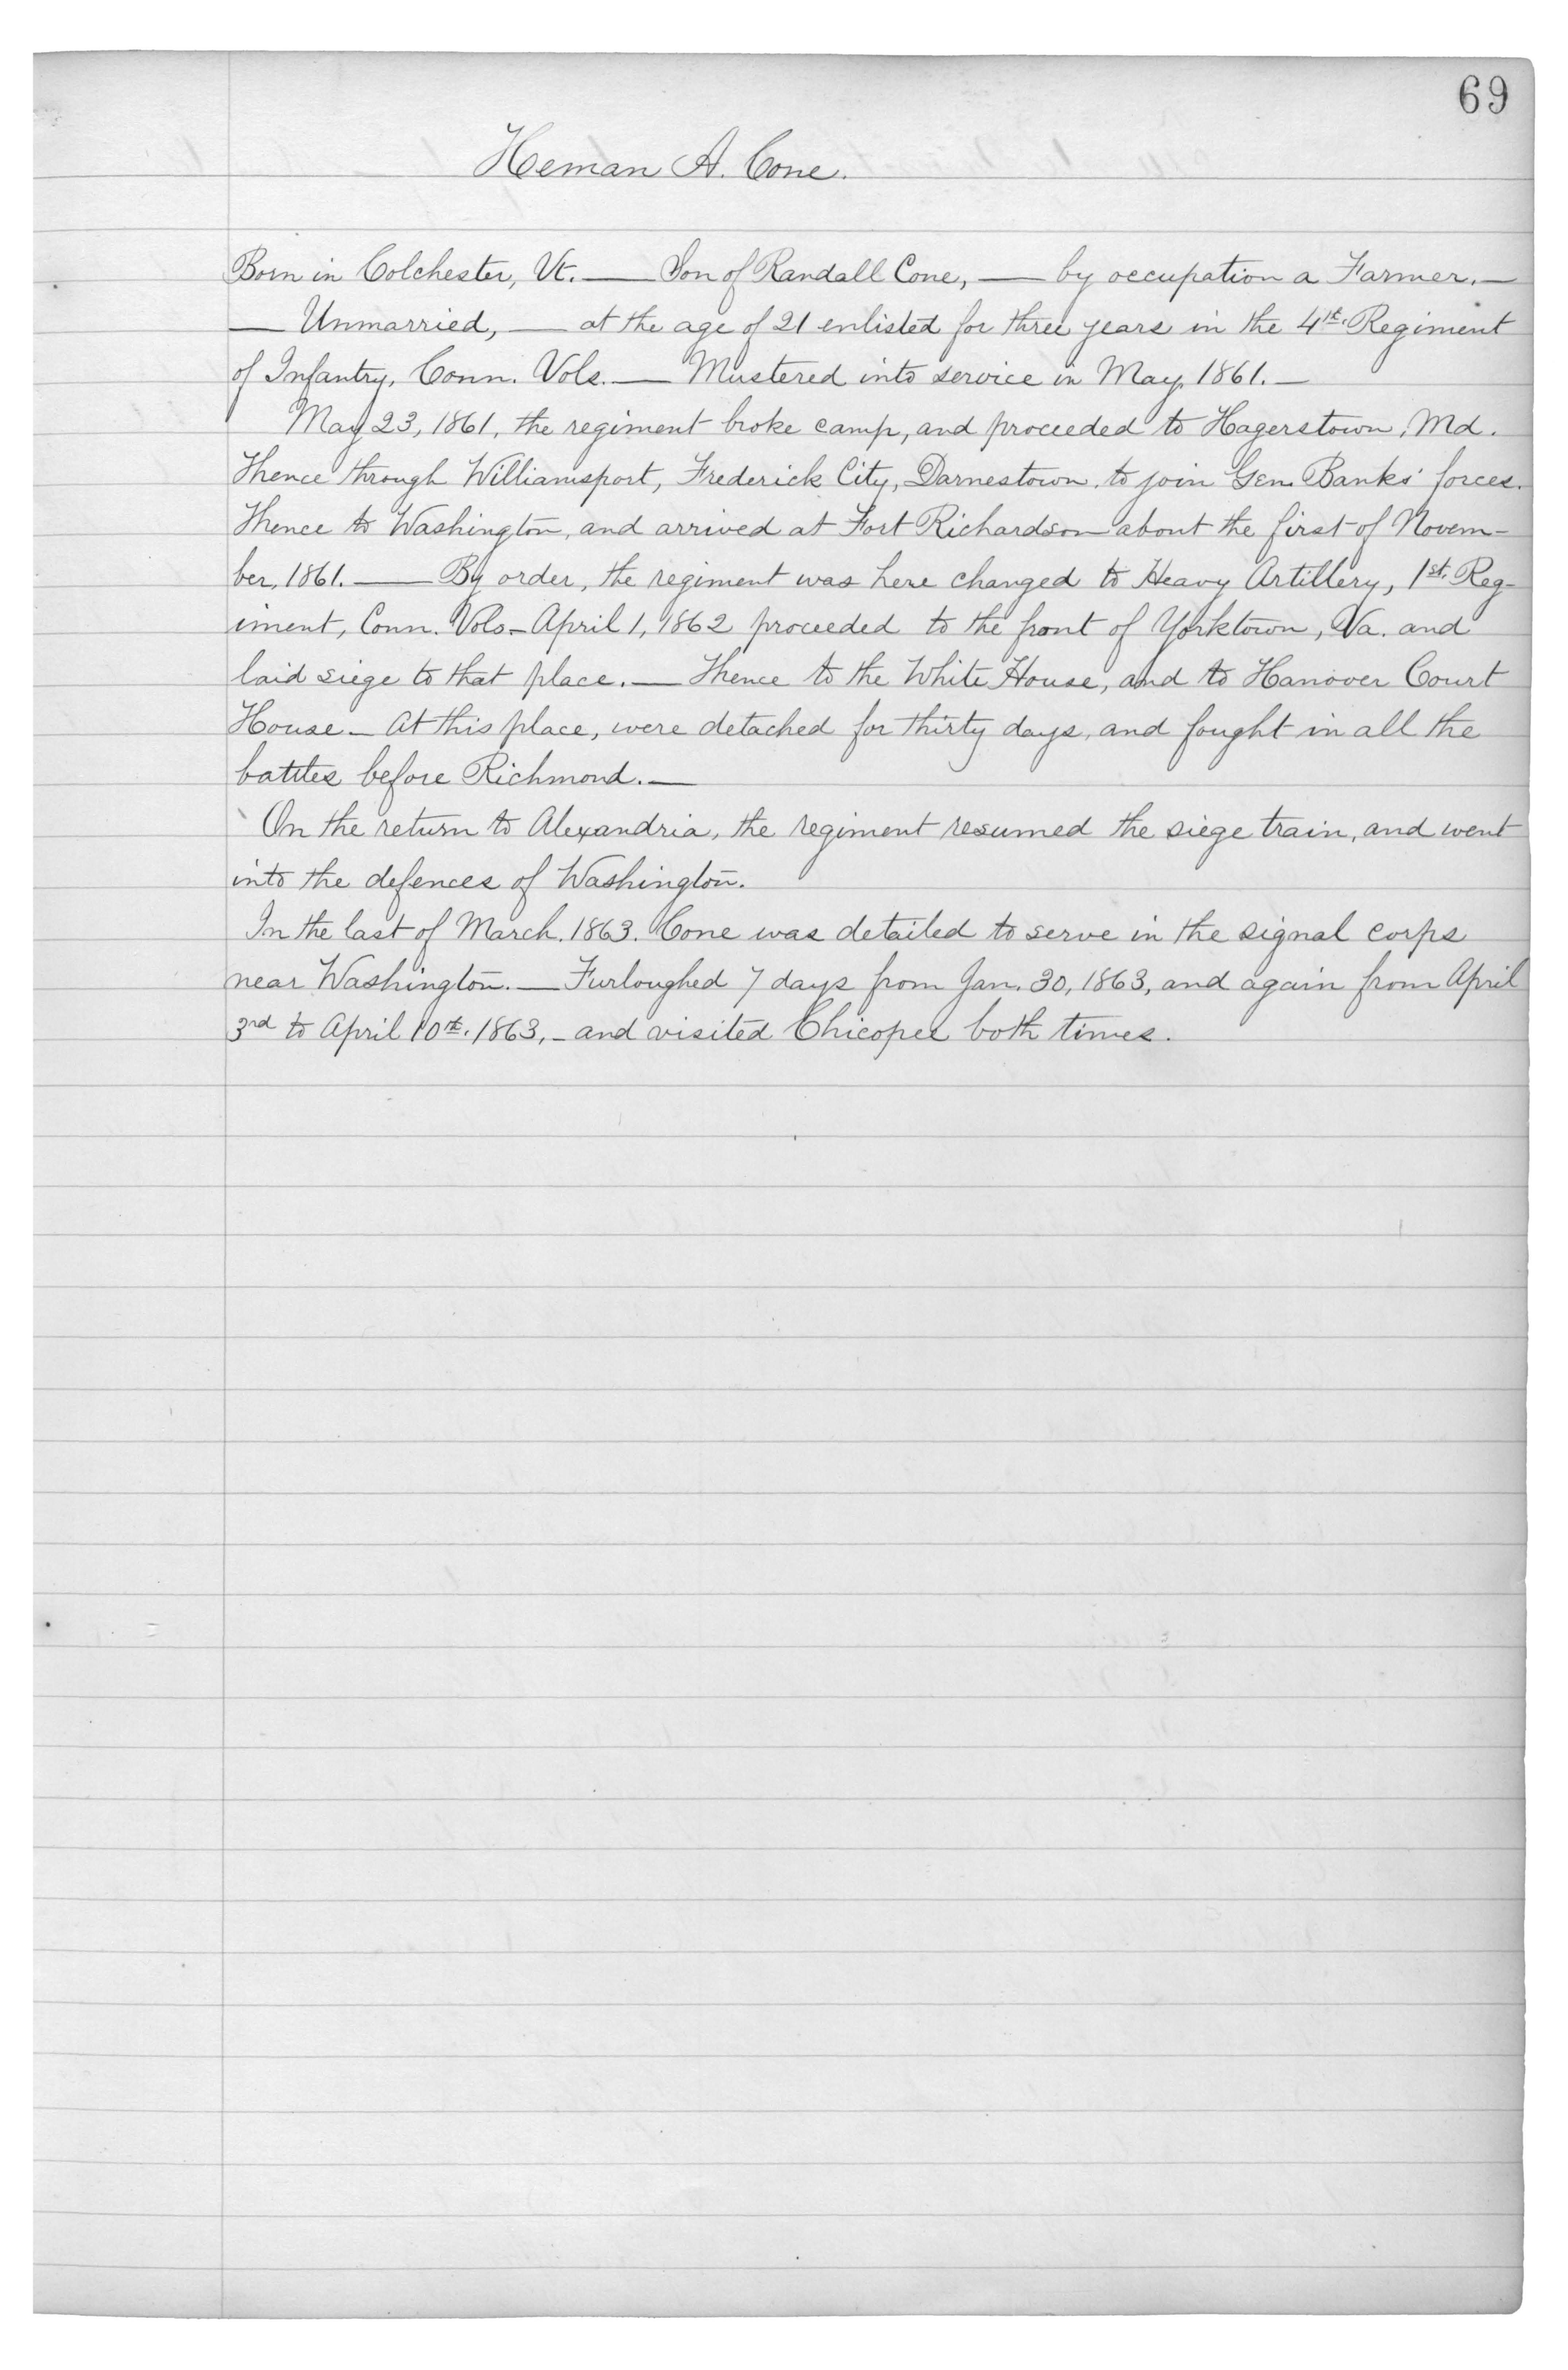 69
Heman A. Cone.
Born in Colchester, Vt. — Son of Randall Cone, — by occupation a Farmer. —
— Unmarried, — at the age of 21 enlisted for three years in the 4th. Regiment
of Infantry, Conn. Vols. — Mustered into service in May, 1861. —
May 23, 1861, the regiment broke camp, and proceeded to Hagerstown, Md.
Thence through Williamsport, Frederick City, Darnestown, to join Gen. Banks' forces.
Thence to Washington, and arrived at Fort Richardson about the first of Novem-
ber, 1861. — By order, the regiment was here changed to Heavy Artillery, 1st. Reg-
iment, Conn. Vols — April 1, 1862 proceeded to the front of Yorktown, Va. and
laid siege to that place. — Thence to the White House, and to Hanover Court
House — At this place, were detached for thirty days, and fought in all the
battles before Richmond. —
On the return to Alexandria, the regiment resumed the siege train, and went
into the defences of Washington.
In the last of March. 1863. Cone was detailed to serve in the signal corps
near Washington. — Furloughed 7 days from Jan. 30, 1863, and again from April
3rd to April 10th. 1863, — and visited Chicopee both times.